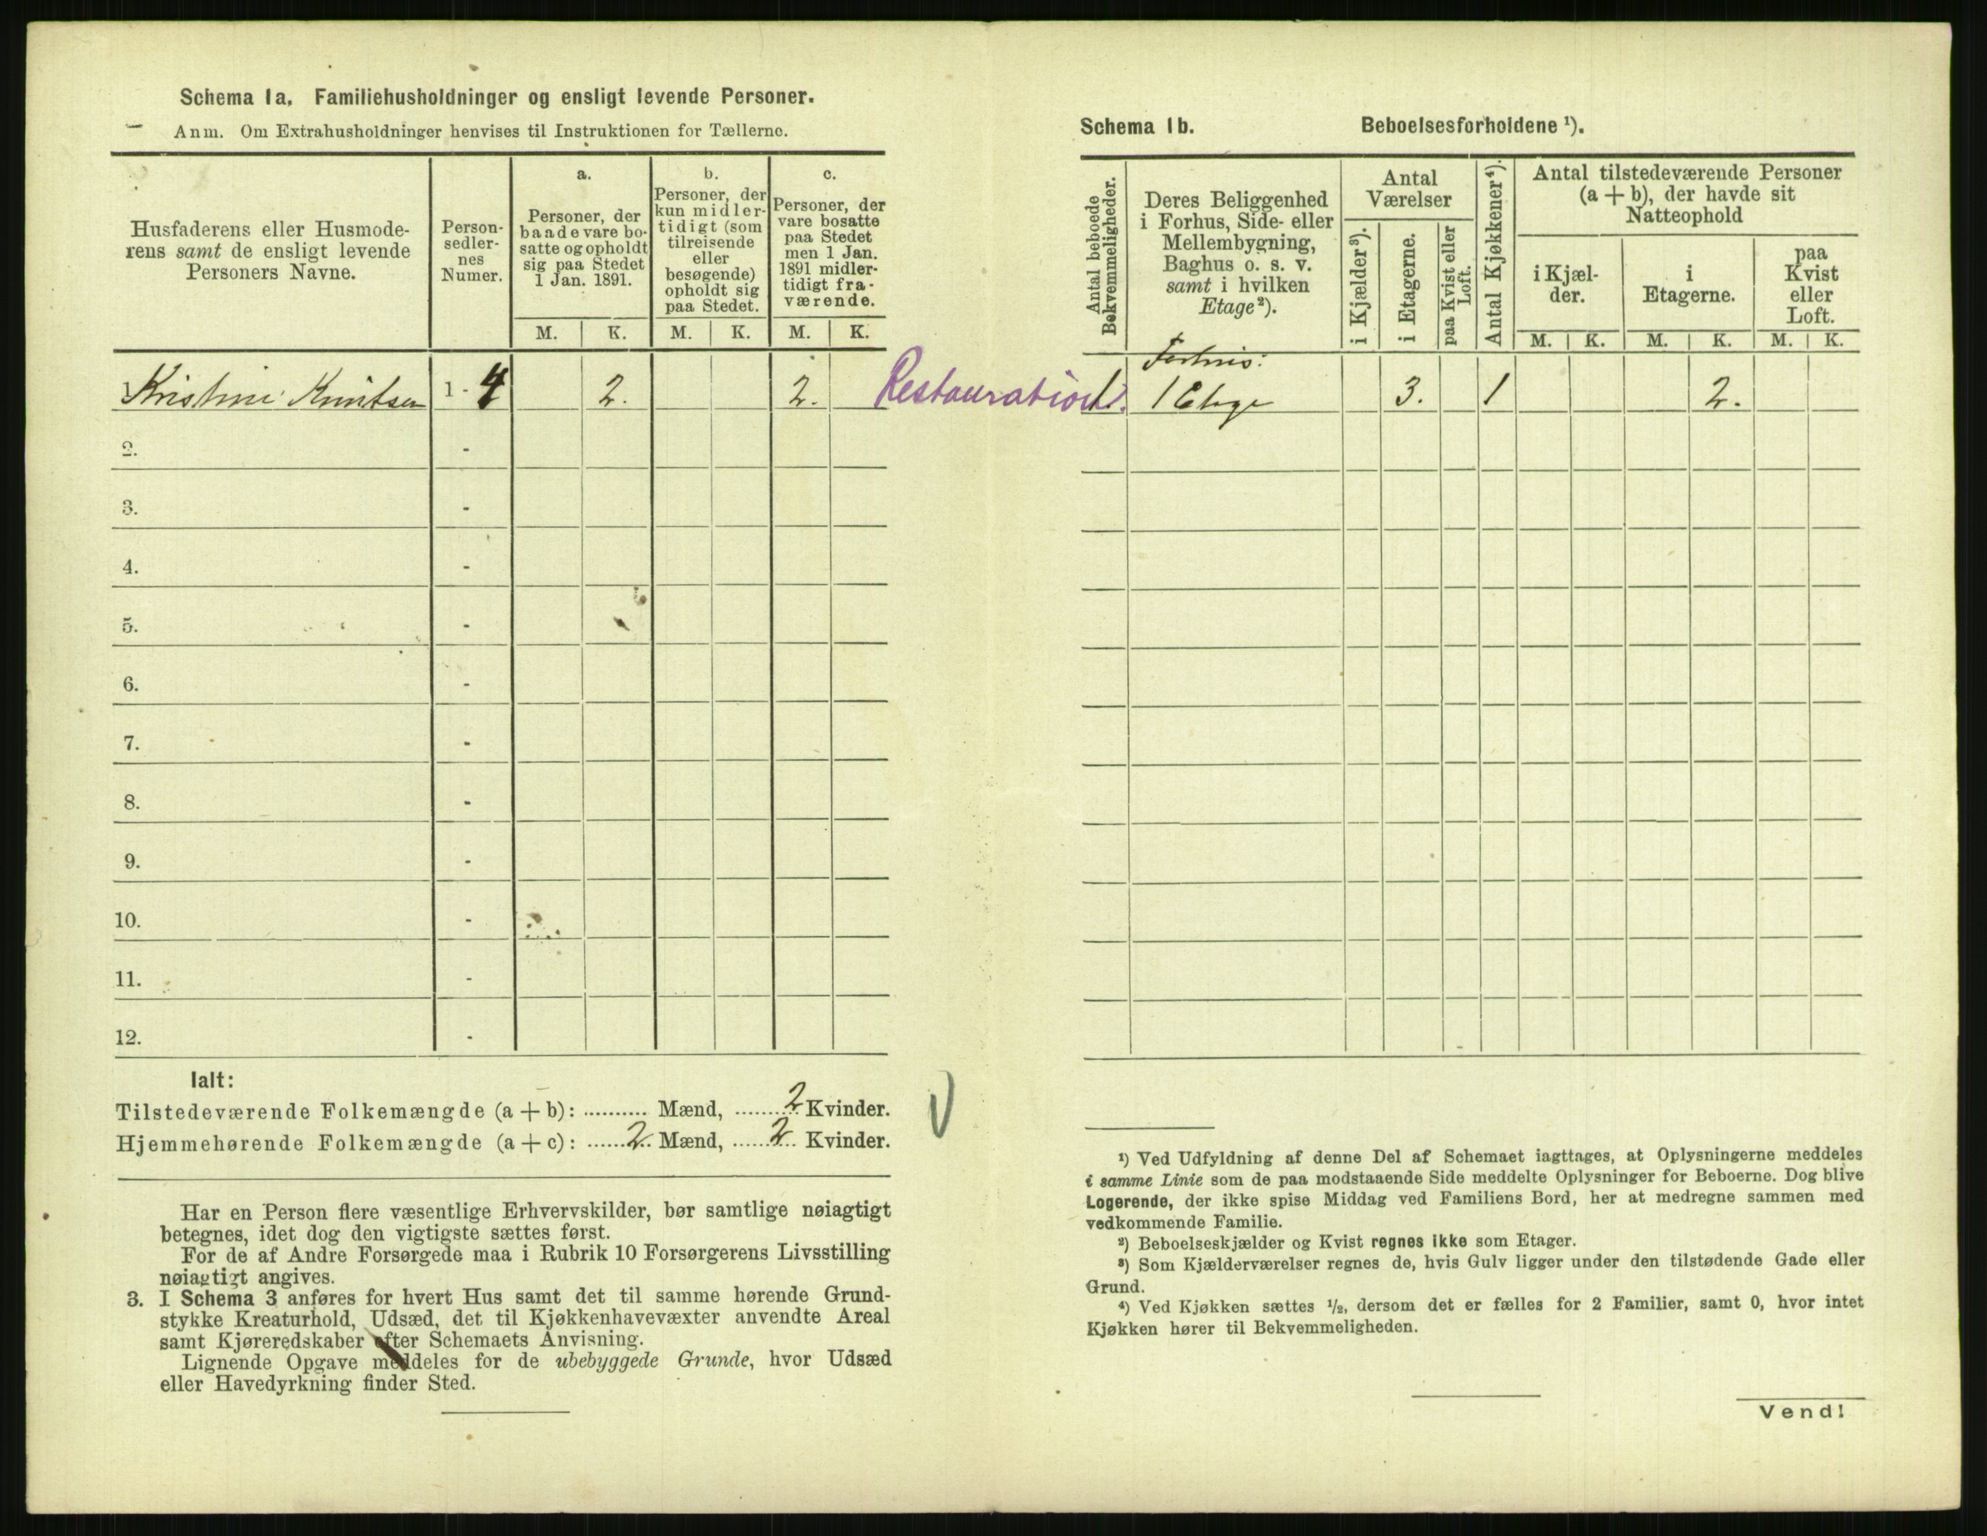 Schema 1a. Familiehusholdninger og ensligt levende Personer.
Anm. Om Extrahusholdninger henvises til Instruktionen for Tællerne.
Husfaderens eller Husmode-
rens samt de ensligt levende
Personers Navne.
Person-
sedler-
nes
Numer.
a.
Personer, der
baade vare bo-
satte og opholdt
sig paa Stedet
1 Jan. 1891.
b.
Personer, der
kun midler-
tidigt (som
tilreisende
eller
besøgende)
opholdt sig
paa Stedet.
c.
Personer, der
vare bosatte
paa Stedet
men 1 Jan.
1891 midler-
tidigt fra-
værende.
M. K. M. K. M. K.
1 Kristine Knutsen 1 - 4 2. 2. Restauration.
2. -
3. -
4. -
5. -
6. -
7. -
8. -
9. -
10. -
11. -
12. -
Ialt:
Tilstedeværende Folkemængde (a + b): .......... Mænd, ......... 2 Kvinder.
Hjemmehørende Folkemængde (a + c): ...... 2 .. Mænd, ...... 2 .. Kvinder.
Har en Person flere væsentlige Erhvervskilder, bør samtlige nøiagtigt
betegnes, idet dog den vigtigste sættes først.
For de af Andre Forsørgede maa i Rubrik 10 Forsørgerens Livsstilling
nøiagtigt angives.
3. I Schema 3 anføres for hvert Hus samt det til samme hørende Grund-
stykke Kreaturhold, Udsæd, det til Kjøkkenhavevæxter anvendte Areal
samt Kjøreredskaber efter Schemaets Anvisning.
Lignende Opgave meddeles for de ubebyggede Grunde, hvor Udsæd
eller Havedyrkning finder Sted.
Schema 1b. Beboelsesforholdene ¹).
Antal beboede
Bekvemmeligheder.
Deres Beliggenhed
i Forhus, Side- eller
Mellembygning,
Baghus o. s. v.
samt i hvilken
Etage²).
Antal
Værelser
i Kjælder³).
i Etagerne.
paa Kvist eller
Loft.
Antal Kjøkkener⁴).
Antal tilstedeværende Personer
(a + b), der havde sit
Natteophold
i Kjæl-
der.
i
Etagerne.
paa
Kvist
eller
Loft.
M. K. M. K. M. K.
Forhus:
1. 1 Etage 3. 1 2.
¹) Ved Udfyldning af denne Del af Schemaet iagttages, at Oplysningerne meddeles
i samme Linie som de paa modstaaende Side meddelte Oplysninger for Beboerne. Dog blive
Logerende, der ikke spise Middag ved Familiens Bord, her at medregne sammen med
vedkommende Familie.
²) Beboelseskjælder og Kvist regnes ikke som Etager.
³) Som Kjælderværelser regnes de, hvis Gulv ligger under den tilstødende Gade eller
Grund.
⁴) Ved Kjøkken sættes ½, dersom det er fælles for 2 Familier, samt 0, hvor intet
Kjøkken hører til Bekvemmeligheden.
Vend!